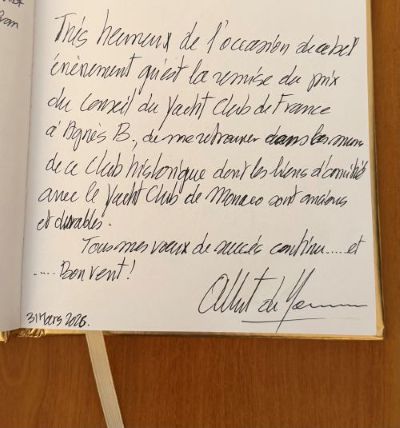 Très heureux de l'occasion de ce bel
évènement qu'est la remise du prix
du Conseil du Yacht Club de France
à Agnès B., de me retrouver dans les murs
de ce club historique dont les liens d'amitiés
avec le Yacht Club de Monaco sont anciens
et durables.
Tous mes vœux de succès continu.....et
.....Bon vent!
Albert de Monaco
31 Mars 2026.